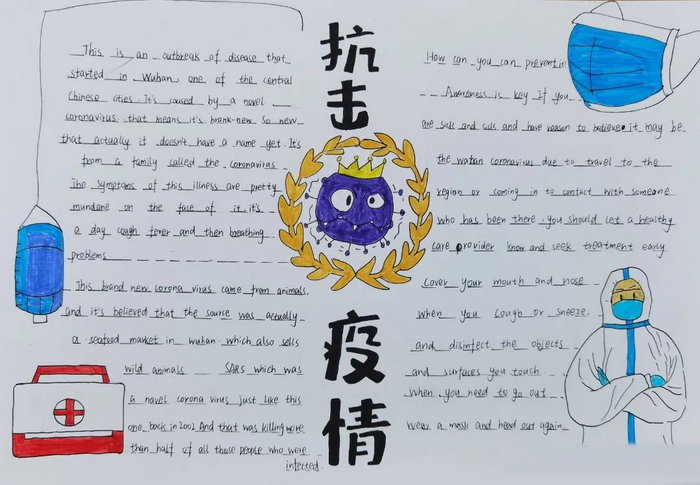 This is an outbreak of disease that
started in Wuhan, one of the central
Chinese cities It's caused by a novel
coronavirus that means it's brank-new So new
that actually it doesn't have a name yet It's
from a family called the coronavirus
The symptoms of this illness are pretty
mundane on the face of it it's
a day cough fever and then breathing
problems
This brand new corona virus came from animals,
and it's believed that the source was actually
a seafood market in wuhan which also sells
wild animals SARs which was
a navel corona virus just like this
one back in 2002 And that was killing more
than half of all those people who were
infected
抗击
疫情
How can you can prevent it
Awareness is key If you
are sick and sick and have reason to believe it may be
the wuhan coronavirus due to travel to the
region or coming in to contact with someone
who has been there, you should let a healthy
care provider know and seek treatment early
cover your mouth and nose
when you cough or sneeze
and disinfect the objects
and surfaces you touch
when you need to go out
wear a mask and head out again